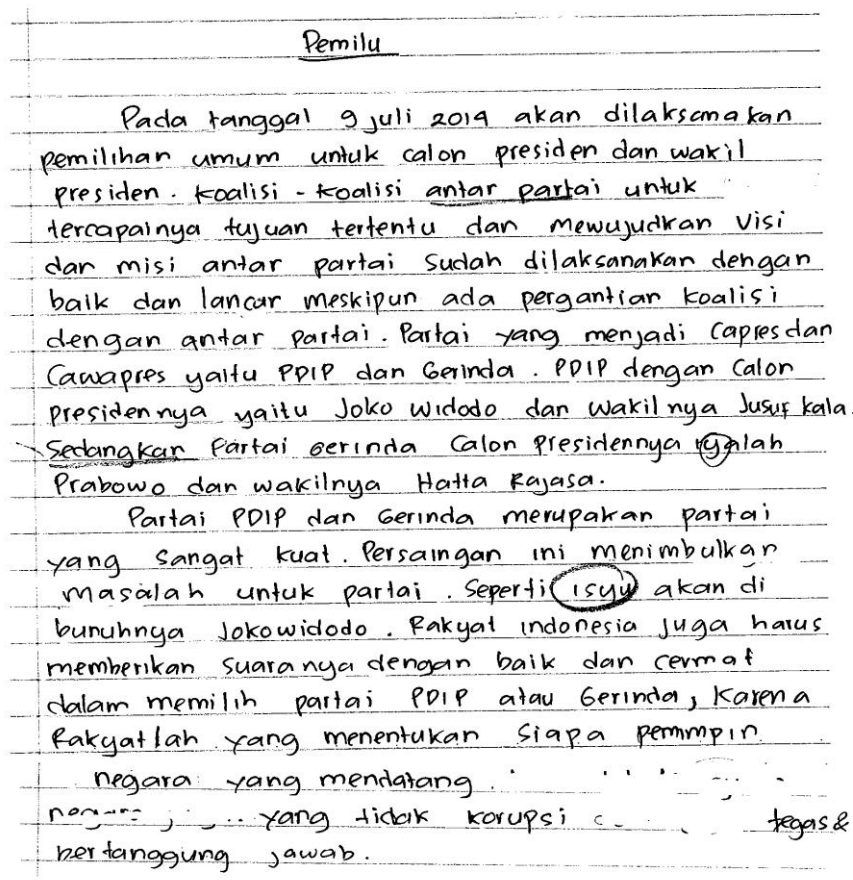 Pemilu
Pada tanggal 9 juli 2014 akan dilaksanakan
pemilihan umum untuk calon presiden dan wakil
presiden. Koalisi - Koalisi antar partai untuk
tercapainya tujuan tertentu dan mewujudkan Visi
dan misi antar partai sudah dilaksanakan dengan
baik dan lancar meskipun ada pergantian koalisi
dengan antar partai. Partai yang menjadi Capres dan
Cawapres yaitu PDIP dan Gerinda. PDIP dengan Calon
presidennya yaitu Joko Widodo dan wakilnya Jusuf kala.
Sedangkan Partai Gerinda Calon presidennya iyalah
Prabowo dan wakilnya Hatta Rajasa.
Partai PDIP dan Gerinda merupakan partai
yang sangat kuat. Persaingan ini menimbulkan
masalah untuk partai. Seperti isyu akan di
bunuhnya Jokowidodo. Rakyat indonesia juga harus
memberikan suaranya dengan baik dan cermat
dalam memilih partai PDIP atau Gerinda, Karena
Rakyatlah yang menentukan Siapa pemimpin
negara yang mendatang
yang tidak korupsi tegas &
bertanggung jawab.